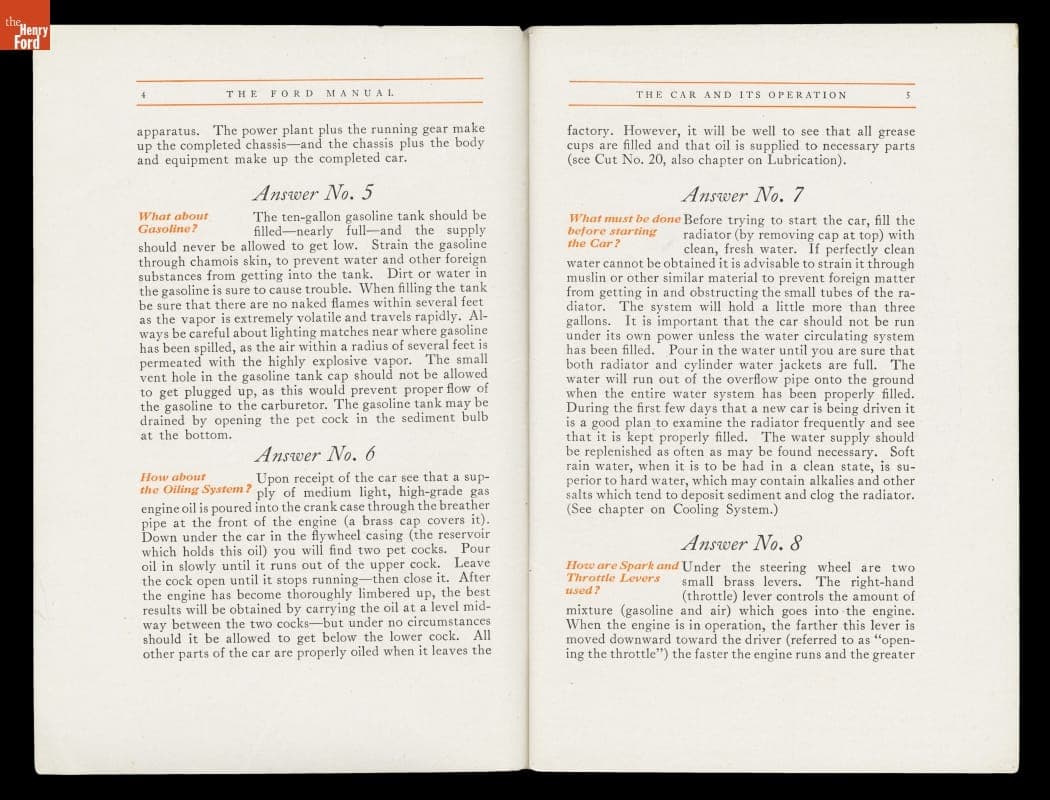 the
Henry
Ford
4 THE FORD MANUAL
apparatus. The power plant plus the running gear make
up the completed chassis—and the chassis plus the body
and equipment make up the completed car.
Answer No. 5
What about
Gasoline?
The ten-gallon gasoline tank should be
filled—nearly full—and the supply
should never be allowed to get low. Strain the gasoline
through chamois skin, to prevent water and other foreign
substances from getting into the tank. Dirt or water in
the gasoline is sure to cause trouble. When filling the tank
be sure that there are no naked flames within several feet
as the vapor is extremely volatile and travels rapidly. Al-
ways be careful about lighting matches near where gasoline
has been spilled, as the air within a radius of several feet is
permeated with the highly explosive vapor. The small
vent hole in the gasoline tank cap should not be allowed
to get plugged up, as this would prevent proper flow of
the gasoline to the carburetor. The gasoline tank may be
drained by opening the pet cock in the sediment bulb
at the bottom.
Answer No. 6
How about
the Oiling System?
Upon receipt of the car see that a sup-
ply of medium light, high-grade gas
engine oil is poured into the crank case through the breather
pipe at the front of the engine (a brass cap covers it).
Down under the car in the flywheel casing (the reservoir
which holds this oil) you will find two pet cocks. Pour
oil in slowly until it runs out of the upper cock. Leave
the cock open until it stops running—then close it. After
the engine has become thoroughly limbered up, the best
results will be obtained by carrying the oil at a level mid-
way between the two cocks—but under no circumstances
should it be allowed to get below the lower cock. All
other parts of the car are properly oiled when it leaves the
THE CAR AND ITS OPERATION 5
factory. However, it will be well to see that all grease
cups are filled and that oil is supplied to necessary parts
(see Cut No. 20, also chapter on Lubrication).
Answer No. 7
What must be done
before starting
the Car?
Before trying to start the car, fill the
radiator (by removing cap at top) with
clean, fresh water. If perfectly clean
water cannot be obtained it is advisable to strain it through
muslin or other similar material to prevent foreign matter
from getting in and obstructing the small tubes of the ra-
diator. The system will hold a little more than three
gallons. It is important that the car should not be run
under its own power unless the water circulating system
has been filled. Pour in the water until you are sure that
both radiator and cylinder water jackets are full. The
water will run out of the overflow pipe onto the ground
when the entire water system has been properly filled.
During the first few days that a new car is being driven it
is a good plan to examine the radiator frequently and see
that it is kept properly filled. The water supply should
be replenished as often as may be found necessary. Soft
rain water, when it is to be had in a clean state, is su-
perior to hard water, which may contain alkalies and other
salts which tend to deposit sediment and clog the radiator.
(See chapter on Cooling System.)
Answer No. 8
How are Spark and
Throttle Levers
used?
Under the steering wheel are two
small brass levers. The right-hand
(throttle) lever controls the amount of
mixture (gasoline and air) which goes into the engine.
When the engine is in operation, the farther this lever is
moved downward toward the driver (referred to as “open-
ing the throttle”) the faster the engine runs and the greater